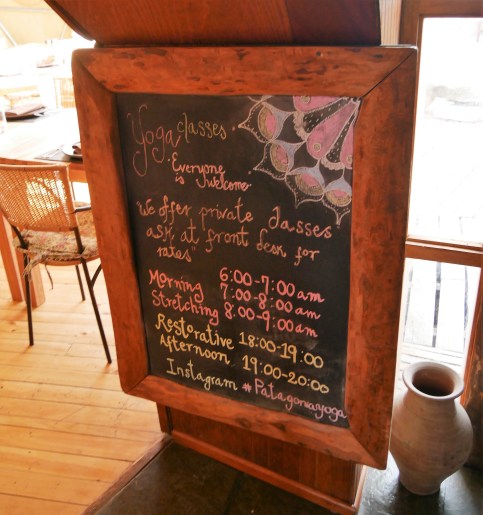 Yoga classes
Everyone
is welcome
"We offer private classes
ask at front desk for
rates"
Morning 6:00-7:00 am
Stretching 7:00-8:00 am
8:00-9:00 am
Restorative 18:00-19:00
Afternoon 19:00-20:00
Instagram #Patagoniayoga